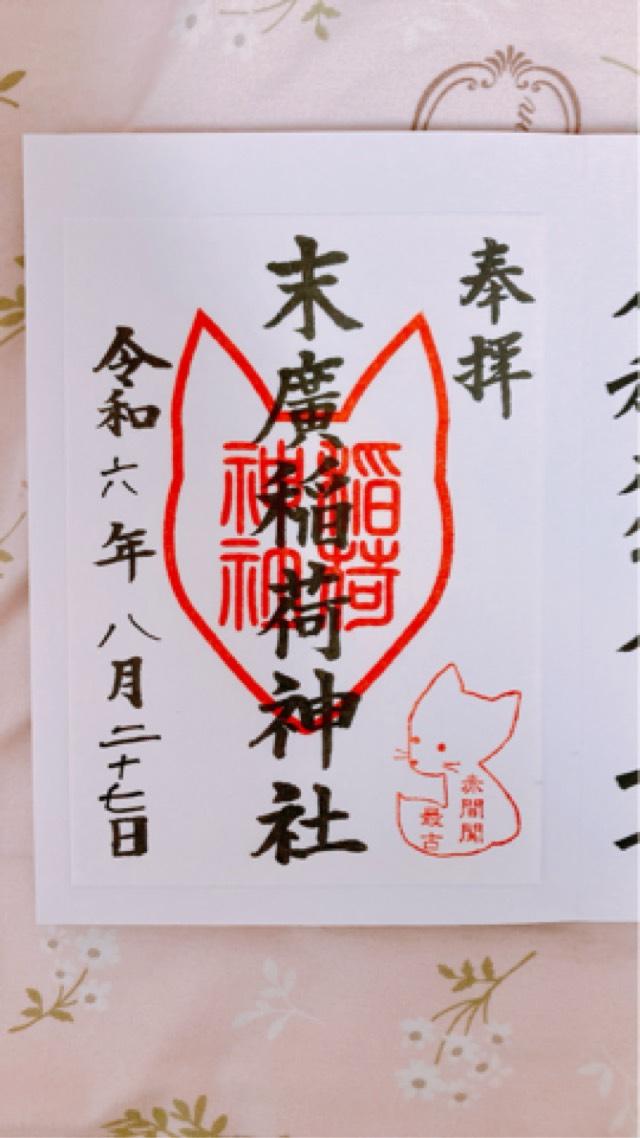 奉拝
末廣稲荷神社
稲荷
神社
赤間関
最古
令和六年八月二十七日